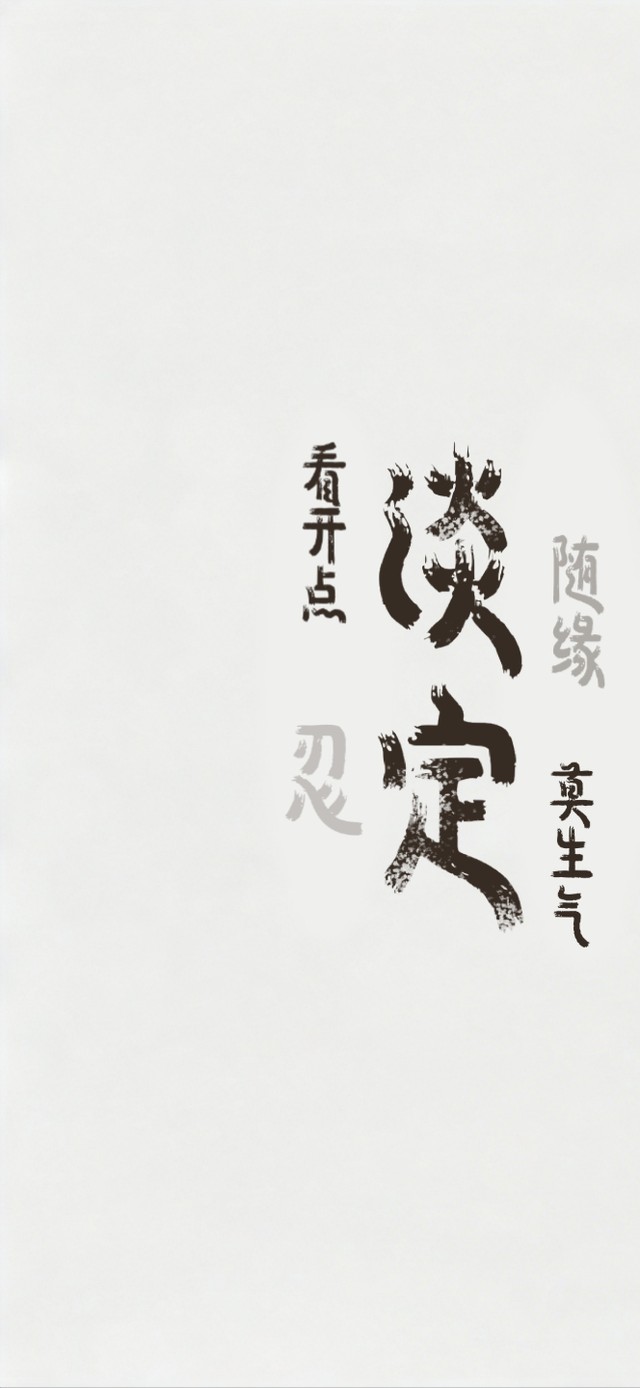 随缘
莫生气
淡定
看开点
忍